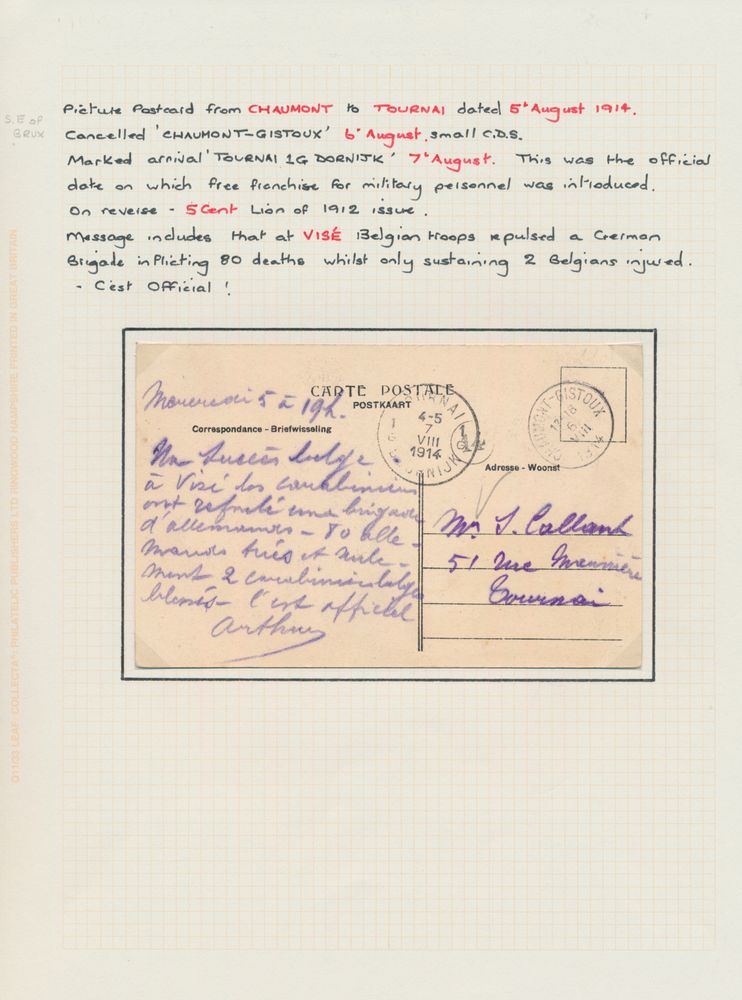 Picture Postcard from CHAUMONT to TOURNAI dated 5th August 1914.
S.E of
BRUX
Cancelled 'CHAUMONT-GISTOUX' 6th August, small C.D.S.
Marked arrival 'TOURNAI 1G DORNIJK' 7th August. This was the official
date on which free franchise for military personnel was introduced.
On reverse - 5 Cent Lion of 1912 issue.
Message includes that at VISÉ Belgian troops repulsed a German
Brigade inflicting 80 deaths whilst only sustaining 2 Belgians injured.
- C'est Official !
Mercredi 5 à 19h.
CARTE POSTALE
POSTKAART
Correspondance - Briefwisseling
TOURNAI
4-5
7
VIII
1914
1G DOORNIJK 1G
CHAUMONT-GISTOUX
17-18
6
VIII
Adresse - Woonst
Un succès belge.
à Visé les carabiniers
ont refoulé une brigade
d'allemands - 80 alle-
mands tués et seule-
ment 2 carabiniers belges
blessés - C'est officiel
Arthur
14
Mr J. Callant
51 rue
Tournai
Q11/33 LEAF 'COLLECTA'. PHILATELIC PUBLISHERS LTD RINGWOOD HAMPSHIRE PRINTED IN GREAT BRITAIN